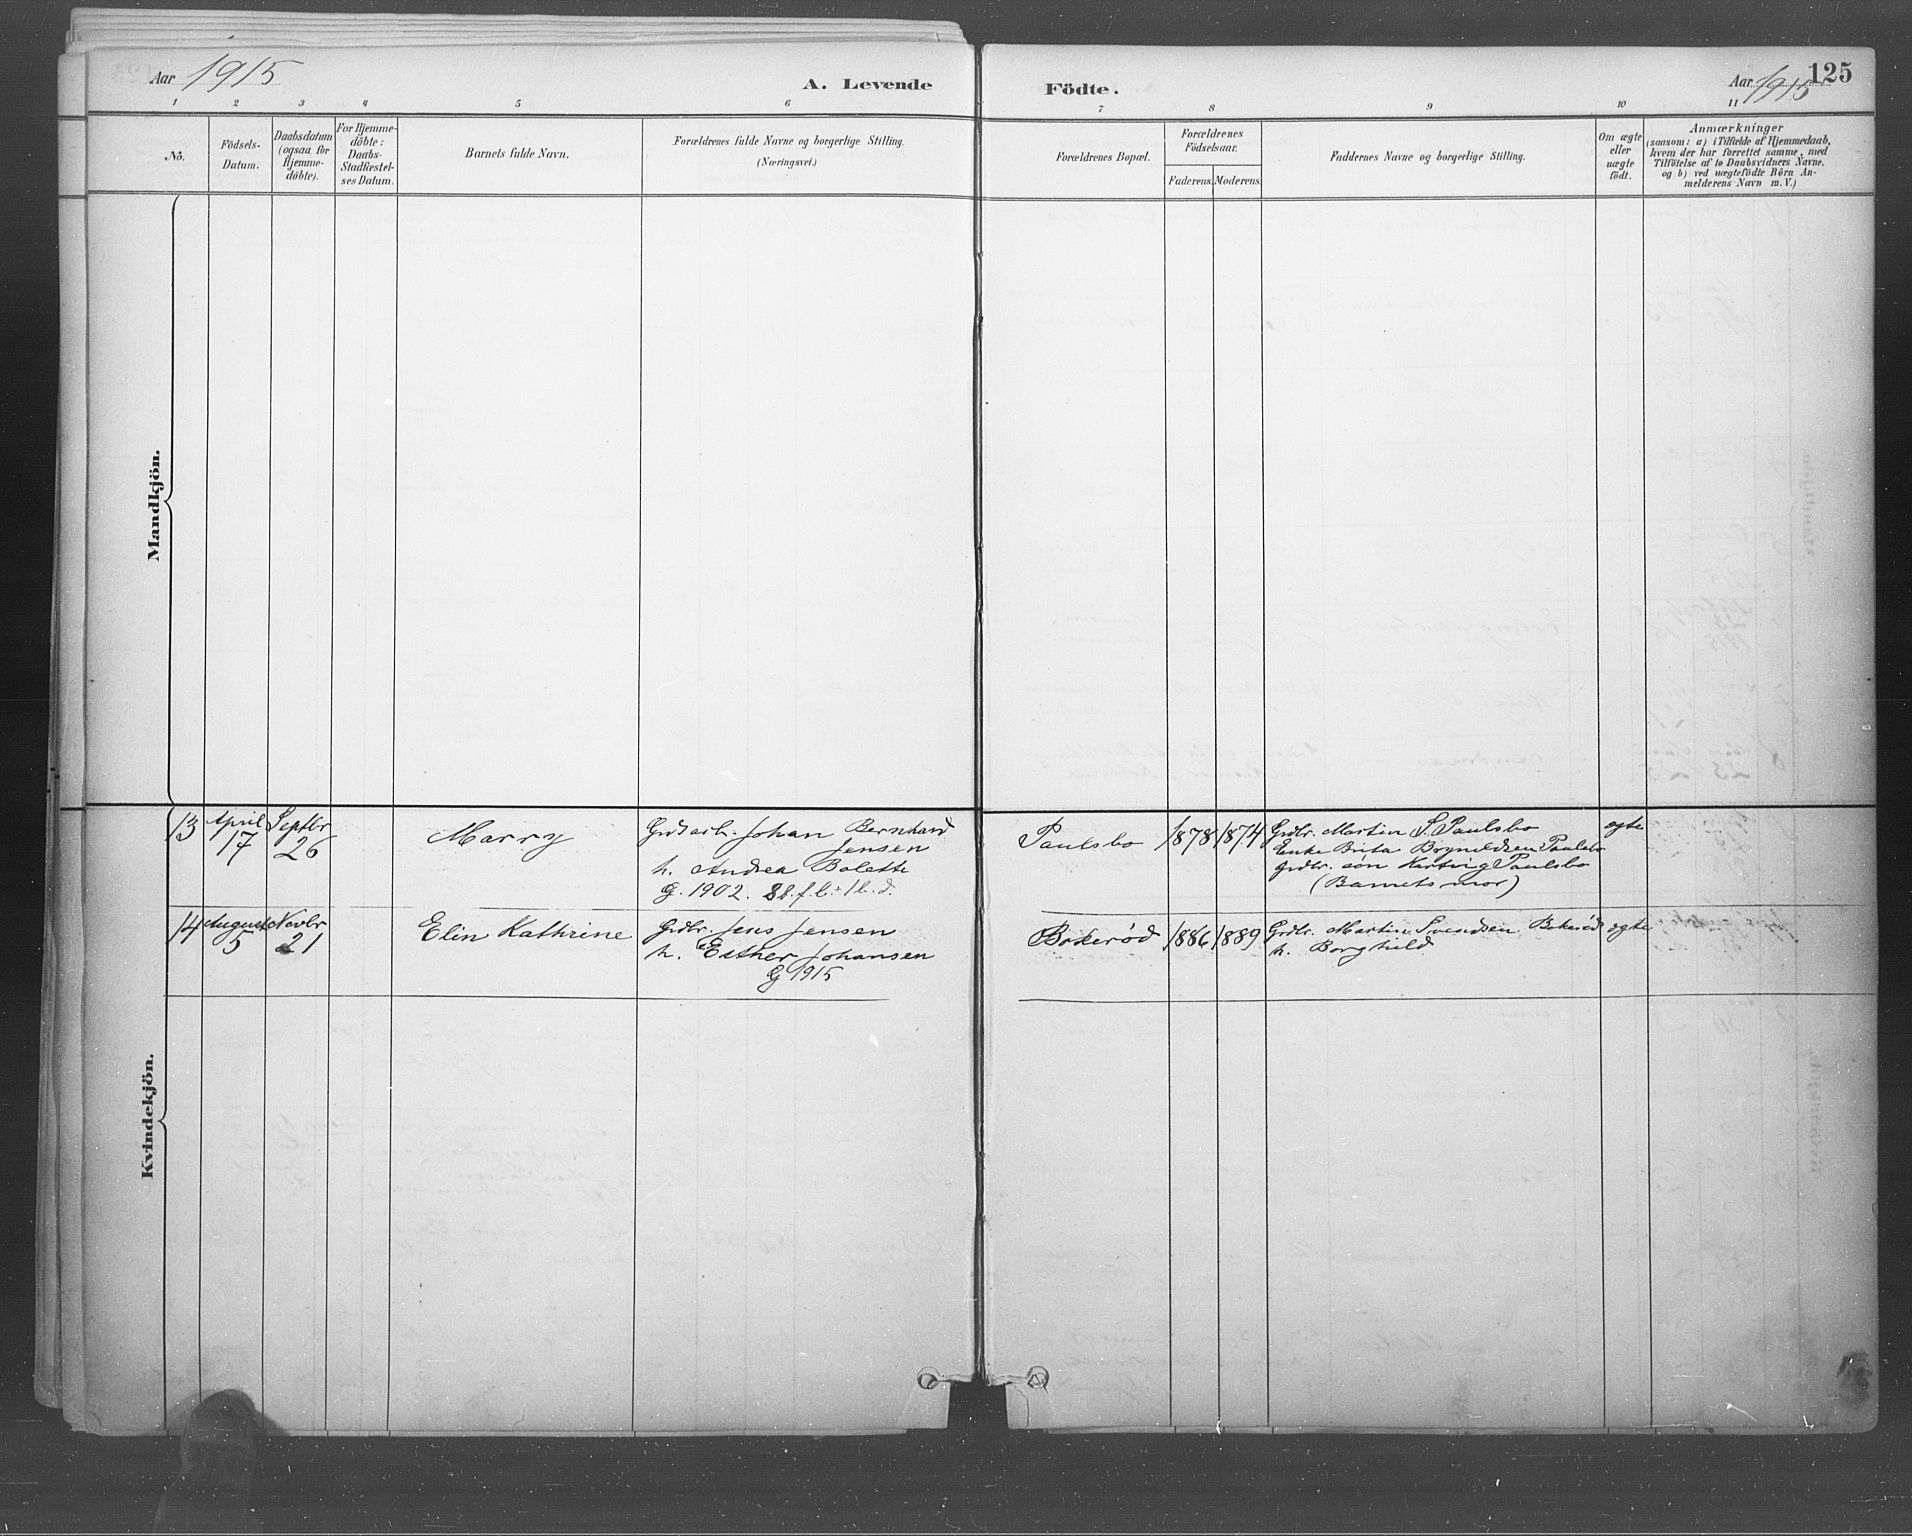 Aar 1915
A. Levende
Födte.
Aar 1915
125
1 2 3 4 5 6 7 8 9 10 11
No.
Födsels-
Datum.
Daabsdatum
(ogsaa for
Hjemme-
döbte).
For Hjemme-
döbte:
Daabs-
Stadfæstel-
ses Datum.
Barnets fulde Navn.
Forældrenes fulde Navne og borgerlige Stilling.
(Næringsvei.)
Forældrenes Bopæl.
Forældrenes
Födselsaar.
Faderens. Moderens.
Faddernes Navne og borgerlige Stilling.
Om ægte
eller
uægte
födt.
Anmærkninger
(saasom: a) i Tilfælde af Hjemmedaab,
hvem der har forrettet samme, med
Tilföielse af to Daabsvidners Navne.
og b) ved uægtefödte Börn An-
melderens Navn m. V.)
Mandkjön.
Kvindekjön.
13
April
17
Septbr
26
Marry
Grdarb. Johan Bernhard
Jensen
h. Andrea Bolette
G. 1902. 8 b. f. l. + 1 b. d.
Paulsbo
1878
1874
Grdbr. Martin S. Paulsbo
Enke Brita Bryneldsen Paulsbo
Grdbr. søn Hartvig Paulsbo
(Barnets mor)
ægte
14
August
5
Novbr
21
Elin Kathrine
Grdbr. Jens Jensen
h. Esther Johansen
G 1915
Bokerød
1886
1889
Grdbr. Martin Svendsen Bokerød
h. Borghild
ægte